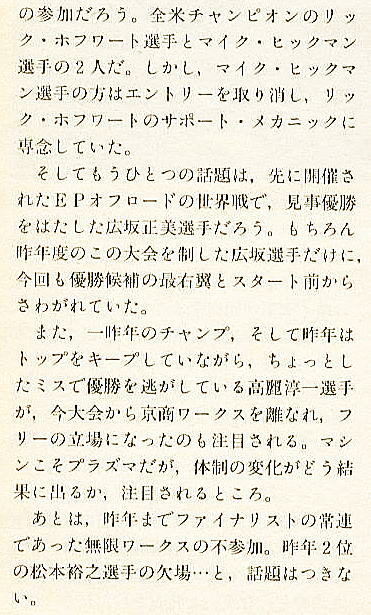 の参加だろう。全米チャンピオンのリッ
ク・ホフワート選手とマイク・ヒックマン
選手の2人だ。しかし，マイク・ヒックマ
ン選手の方はエントリーを取り消し，リッ
ク・ホフワートのサポート・メカニックに
専念していた。
　そしてもうひとつの話題は，先に開催さ
れたＥＰオフロードの世界戦で，見事優勝
をはたした広坂正美選手だろう。もちろん
昨年度のこの大会を制した広坂選手だけに，
今回も優勝候補の最右翼とスタート前から
さわがれていた。
　また，一昨年のチャンプ，そして昨年は
トップをキープしていながら，ちょっとし
たミスで優勝を逃がしている高麗淳一選手
が，今大会から京商ワークスを離なれ，フ
リーの立場になったのも注目される。マシ
ンこそプラズマだが，体制の変化がどう結
果に出るか，注目されるところ。
　あとは，昨年までファイナリストの常連
であった無限ワークスの不参加。昨年2位
の松本裕之選手の欠場…と，話題はつきな
い。